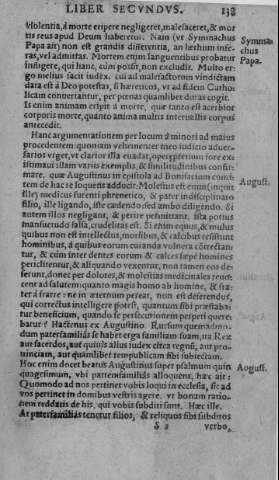 LIBER SECVNDVS. 138
violentia, à morte eripere negligeret, malefaceret, & mor
tis reus apud Deum haberetur. Nam (vt Symmachus
Papa ait) non est grandis differentia, an lethum infe-
ras, vel admittas. Mortem enim languentibus probatur
infligere, qui hanc, cùm possit, non excludit. Multo er-
go melius facit iudex, cui ad malefactorum vindictam
data est à Deo potestas, si hæreticos, vt ad fidem Catho
licam conuertantur, per pœnas quamlibet duras cogit.
Is enim animam eripit à morte, quæ tanto est acerbior
corporis morte, quanto anima multis interuallis corpus
antecedit.
Symma
chus
Papa.
Hanc argumentationem per locum à minori ad maius
procedentem, quoniam vehementer meo iudicio aduer-
sarios vrget, vt clarior illa euadat, operæpretium fore exi
stimaui illam variis exemplis, & similitudinibus confir-
mare, quæ Augustinus in epistola ad Bonifacium comi-
tem de hac re loquens adducit: Molestus est enim (inquit
ille) medicus furenti phrenetico, & pater indisciplinato
filio, ille ligando, iste cædendo: sed ambo diligendo. Si
autem illos negligant, & perire permittant, ista potius
mansuetudo falsa, crudelitas est. Si enim equus, & mulus
quibus non est intellectus, morsibus, & calcibus resistunt
hominibus, à quibus eorum curanda vulnera cõtrectan-
tur, & cùm inter dentes eorum & calces sæpè homines
periclitentur, & aliquando vexentur, non tamen eos de-
serunt, donec per dolores, & molestias medicinales reuo-
cent ad salutem: quanto magis homo ab homine, & fra-
ter à fratre: ne in æternum pereat, non est deserendus,
qui correctus intelligere potest, quantum sibi præstaba-
tur beneficium, quando se persecutionem perpeti quere-
batur? Hactenus ex Augustino. Rursum quemadmo-
dum paterfamiliâs se habet erga familiam suam, ita Rex
aut sacerdos, aut quiuis alius iudex circa regnũ, aut pro-
uinciam, aut quamlibet rempublicam sibi subiectam.
August.
Hoc enim docet beatus Augustinus super psalmum quin
quagesimum, vbi patresfamiliâs alloquens, hæc ait:
Quomodo ad nos pertinet vobis loqui in ecclesia, sic ad
vos pertinet in domibus vestris agere, vt bonam ratio-
nem reddatis de his, qui vobis subditi sunt. Hæc ille.
At paterfamiliâs tenetur filios, & reliquos sibi subditos
August.
S 2 verbo,